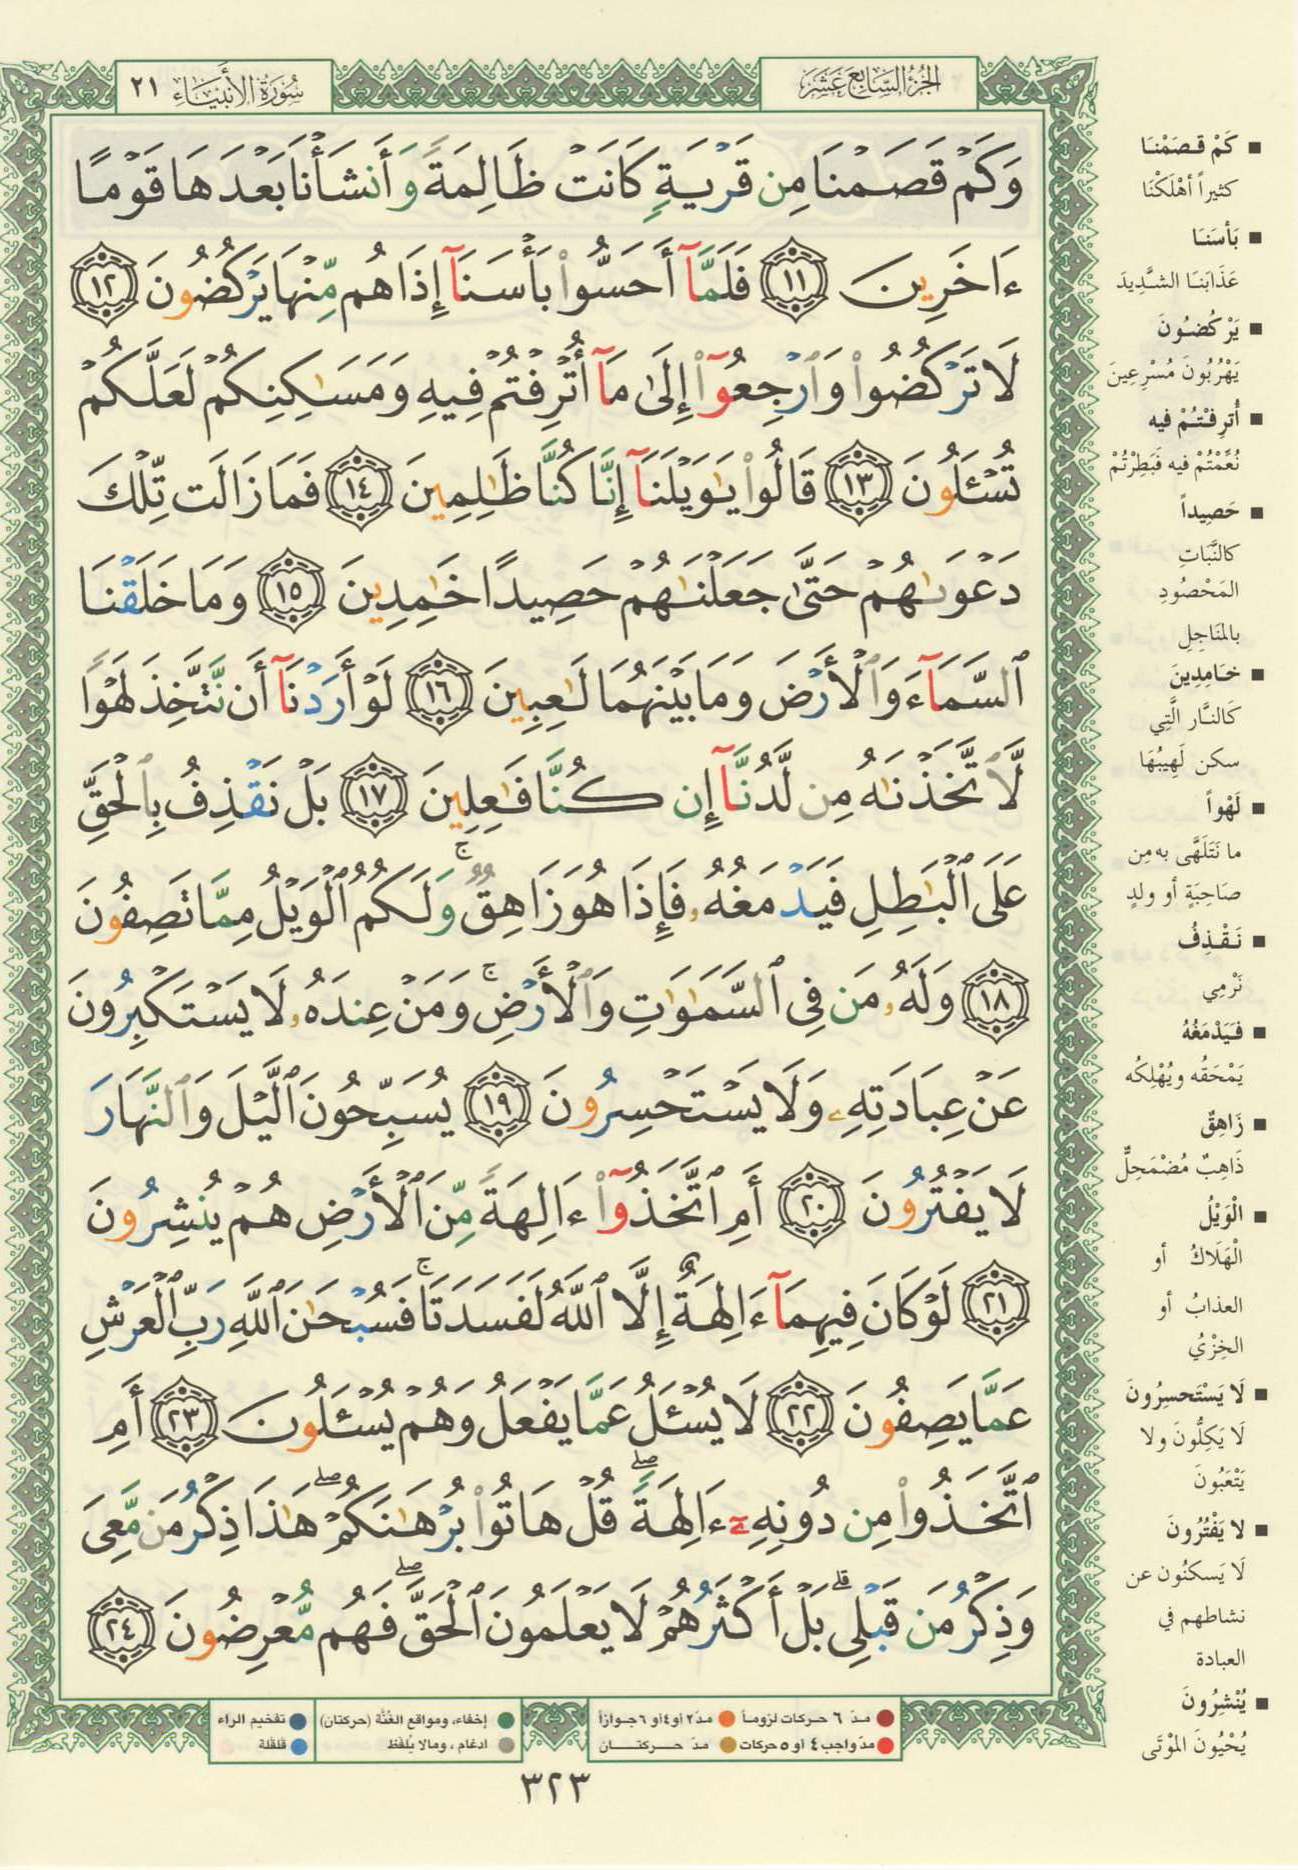 الجزء السابع عشر
سورة الأنبياء ٢١
وَكَمْ قَصَمْنَا مِن قَرْيَةٍ كَانَتْ ظَالِمَةً وَأَنشَأْنَا بَعْدَهَا قَوْمًا
ءَاخَرِينَ ١١ فَلَمَّآ أَحَسُّوا۟ بَأْسَنَآ إِذَا هُم مِّنْهَا يَرْكُضُونَ ١٢
لَا تَرْكُضُوا۟ وَٱرْجِعُوٓا۟ إِلَىٰ مَآ أُتْرِفْتُمْ فِيهِ وَمَسَـٰكِنِكُمْ لَعَلَّكُمْ
تُسْـَٔلُونَ ١٣ قَالُوا۟ يَـٰوَيْلَنَآ إِنَّا كُنَّا ظَـٰلِمِينَ ١٤ فَمَا زَالَت تِّلْكَ
دَعْوَىٰهُمْ حَتَّىٰ جَعَلْنَـٰهُمْ حَصِيدًا خَـٰمِدِينَ ١٥ وَمَا خَلَقْنَا
ٱلسَّمَآءَ وَٱلْأَرْضَ وَمَا بَيْنَهُمَا لَـٰعِبِينَ ١٦ لَوْ أَرَدْنَآ أَن نَّتَّخِذَ لَهْوًا
لَّٱتَّخَذْنَـٰهُ مِن لَّدُنَّآ إِن كُنَّا فَـٰعِلِينَ ١٧ بَلْ نَقْذِفُ بِٱلْحَقِّ
عَلَى ٱلْبَـٰطِلِ فَيَدْمَغُهُۥ فَإِذَا هُوَ زَاهِقٌ ۚ وَلَكُمُ ٱلْوَيْلُ مِمَّا تَصِفُونَ
١٨ وَلَهُۥ مَن فِى ٱلسَّمَـٰوَٰتِ وَٱلْأَرْضِ ۚ وَمَنْ عِندَهُۥ لَا يَسْتَكْبِرُونَ
عَنْ عِبَادَتِهِۦ وَلَا يَسْتَحْسِرُونَ ١٩ يُسَبِّحُونَ ٱلَّيْلَ وَٱلنَّهَارَ
لَا يَفْتُرُونَ ٢٠ أَمِ ٱتَّخَذُوٓا۟ ءَالِهَةً مِّنَ ٱلْأَرْضِ هُمْ يُنشِرُونَ
٢١ لَوْ كَانَ فِيهِمَآ ءَالِهَةٌ إِلَّا ٱللَّهُ لَفَسَدَتَا ۚ فَسُبْحَـٰنَ ٱللَّهِ رَبِّ ٱلْعَرْشِ
عَمَّا يَصِفُونَ ٢٢ لَا يُسْـَٔلُ عَمَّا يَفْعَلُ وَهُمْ يُسْـَٔلُونَ ٢٣ أَمِ
ٱتَّخَذُوا۟ مِن دُونِهِۦٓ ءَالِهَةً ۖ قُلْ هَاتُوا۟ بُرْهَـٰنَكُمْ ۖ هَـٰذَا ذِكْرُ مَن مَّعِىَ
وَذِكْرُ مَن قَبْلِى ۗ بَلْ أَكْثَرُهُمْ لَا يَعْلَمُونَ ٱلْحَقَّ ۖ فَهُم مُّعْرِضُونَ ٢٤
■ كَمْ قَصَمْنَا
كثيراً أهْلَكْنَا
■ بَأسَنَا
عَذَابَنَا الشَّدِيدَ
■ يَرْكُضُونَ
يَهْرُبُونَ مُسْرِعِينَ
■ أُترِفْتُمْ فيه
نُعِّمْتُمْ فيه فَبَطِرْتُمْ
■ حَصِيداً
كالنَّبَاتِ
المَحْصُودِ
بالمَنَاجِلِ
■ خَامِدِينَ
كَالنَّار الَّتِي
سكن لَهِيبُهَا
■ لَهْواً
ما نَتَلَهَّى به مِن
صَاحِبَةٍ أو ولدٍ
■ نَقْذِفُ
نَرْمِي
■ فَيَدْمَغُهُ
يَمْحَقُه ويُهْلِكُه
■ زَاهِقٌ
ذَاهِبٌ مُضْمَحِلٌّ
■ الْوَيْلُ
الْهَلَاكُ أو
العذابُ أو
الخِزْيُ
■ لَا يَسْتَحسِرُونَ
لَا يَكِلُّونَ ولا
يَتْعَبُونَ
■ لا يَفْتُرُونَ
لَا يَسكنُون عن
نشاطهم في
العبادة
■ يُنْشِرُونَ
يُحْيُونَ المَوْتَى
مدّ ٦ حركات لزوماً مدّ ٢ أو ٤ أو ٦ جوازاً إخفاء، ومواقع الغُنَّة (حركتان) تفخيم الراء
مدّ واجب ٤ أو ٥ حركات مدّ حركتان ادغام ، ومالا يُلفَظ قلقلة
٣٢٣